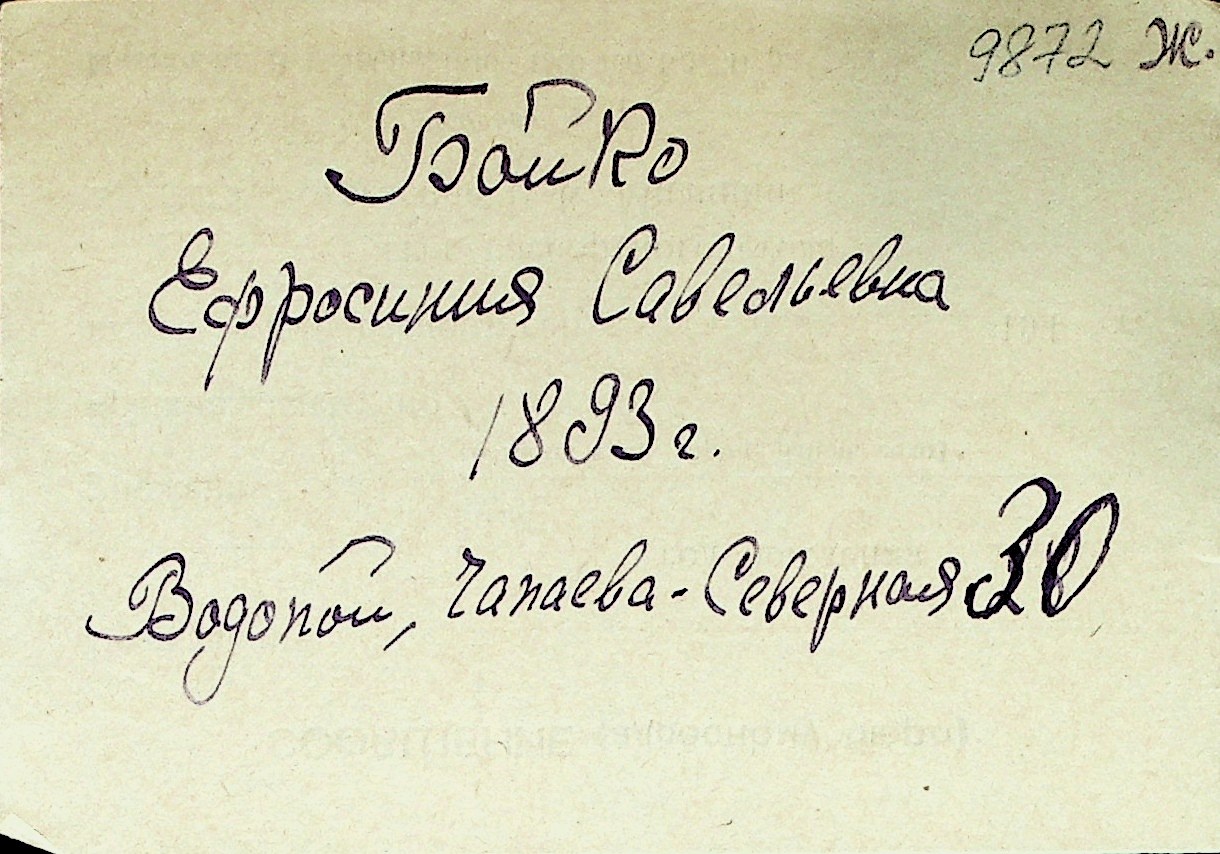 9872 Ж.
Бойко
Ефросиния Савельевна
1893 г.
Водопой, Чапаева-Северная 30